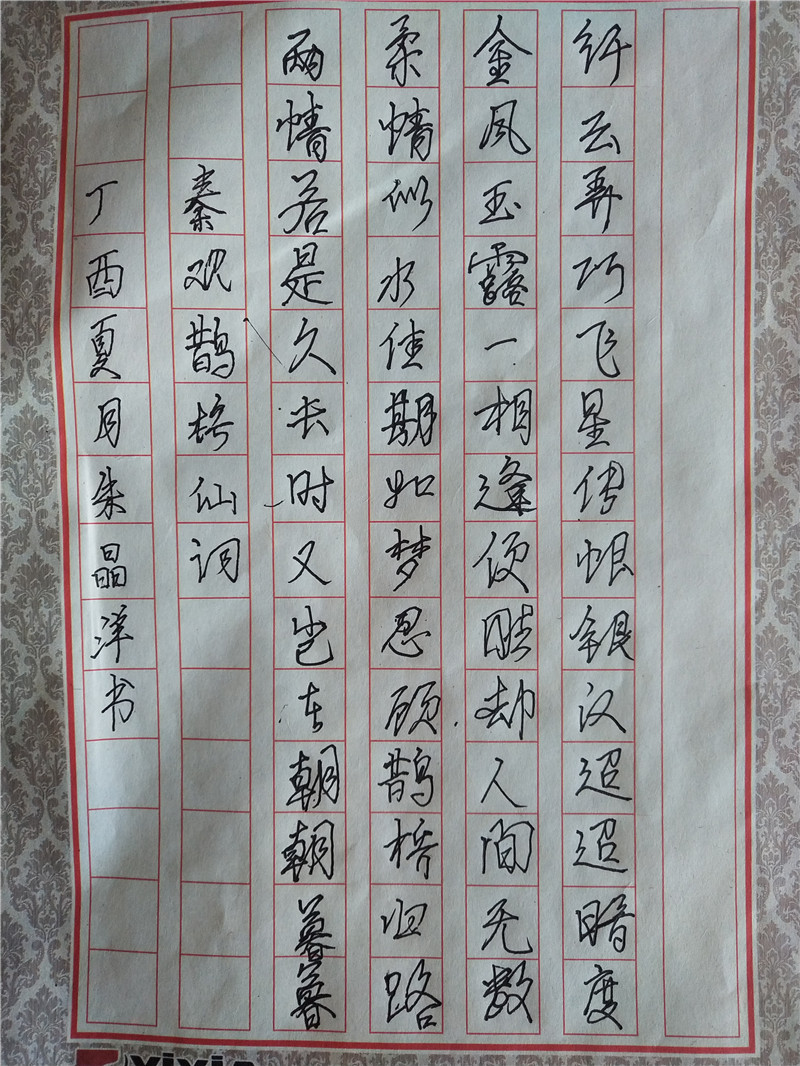 纤云弄巧飞星传恨银汉迢迢暗度
金风玉露一相逢便胜却人间无数
柔情似水佳期如梦忍顾鹊桥归路
两情若是久长时又岂在朝朝暮暮
秦观鹊桥仙词
丁酉夏月朱晶洋书